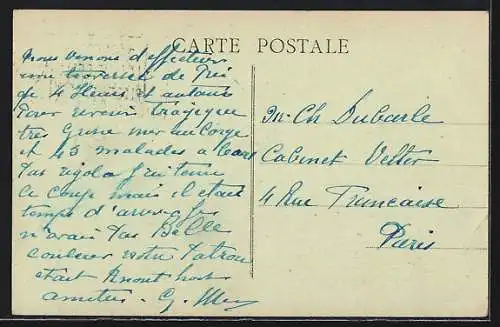 CARTE POSTALE
Nous venons d'effectuer
une traversée de Près
de 4 Heures et autant
Pour revenir tragique
très Grosse mer au large
et 45 malades a bord
Pas rigolo j'ai tenu
le coup mais il était
temps d'arriver je
n'avais Pas Belle
couleur votre Patron
était Knout hors
amitiés. G.
Mr Ch Dubarle
Cabinet Velter
4 Rue Francaise
Paris